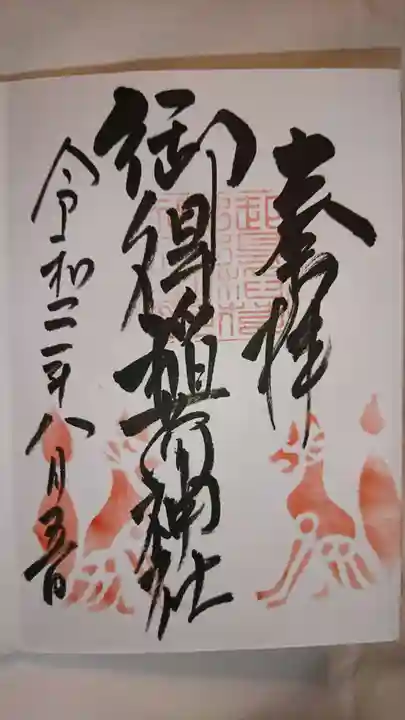 奉拝
御得稲荷神社
令和二年八月五日